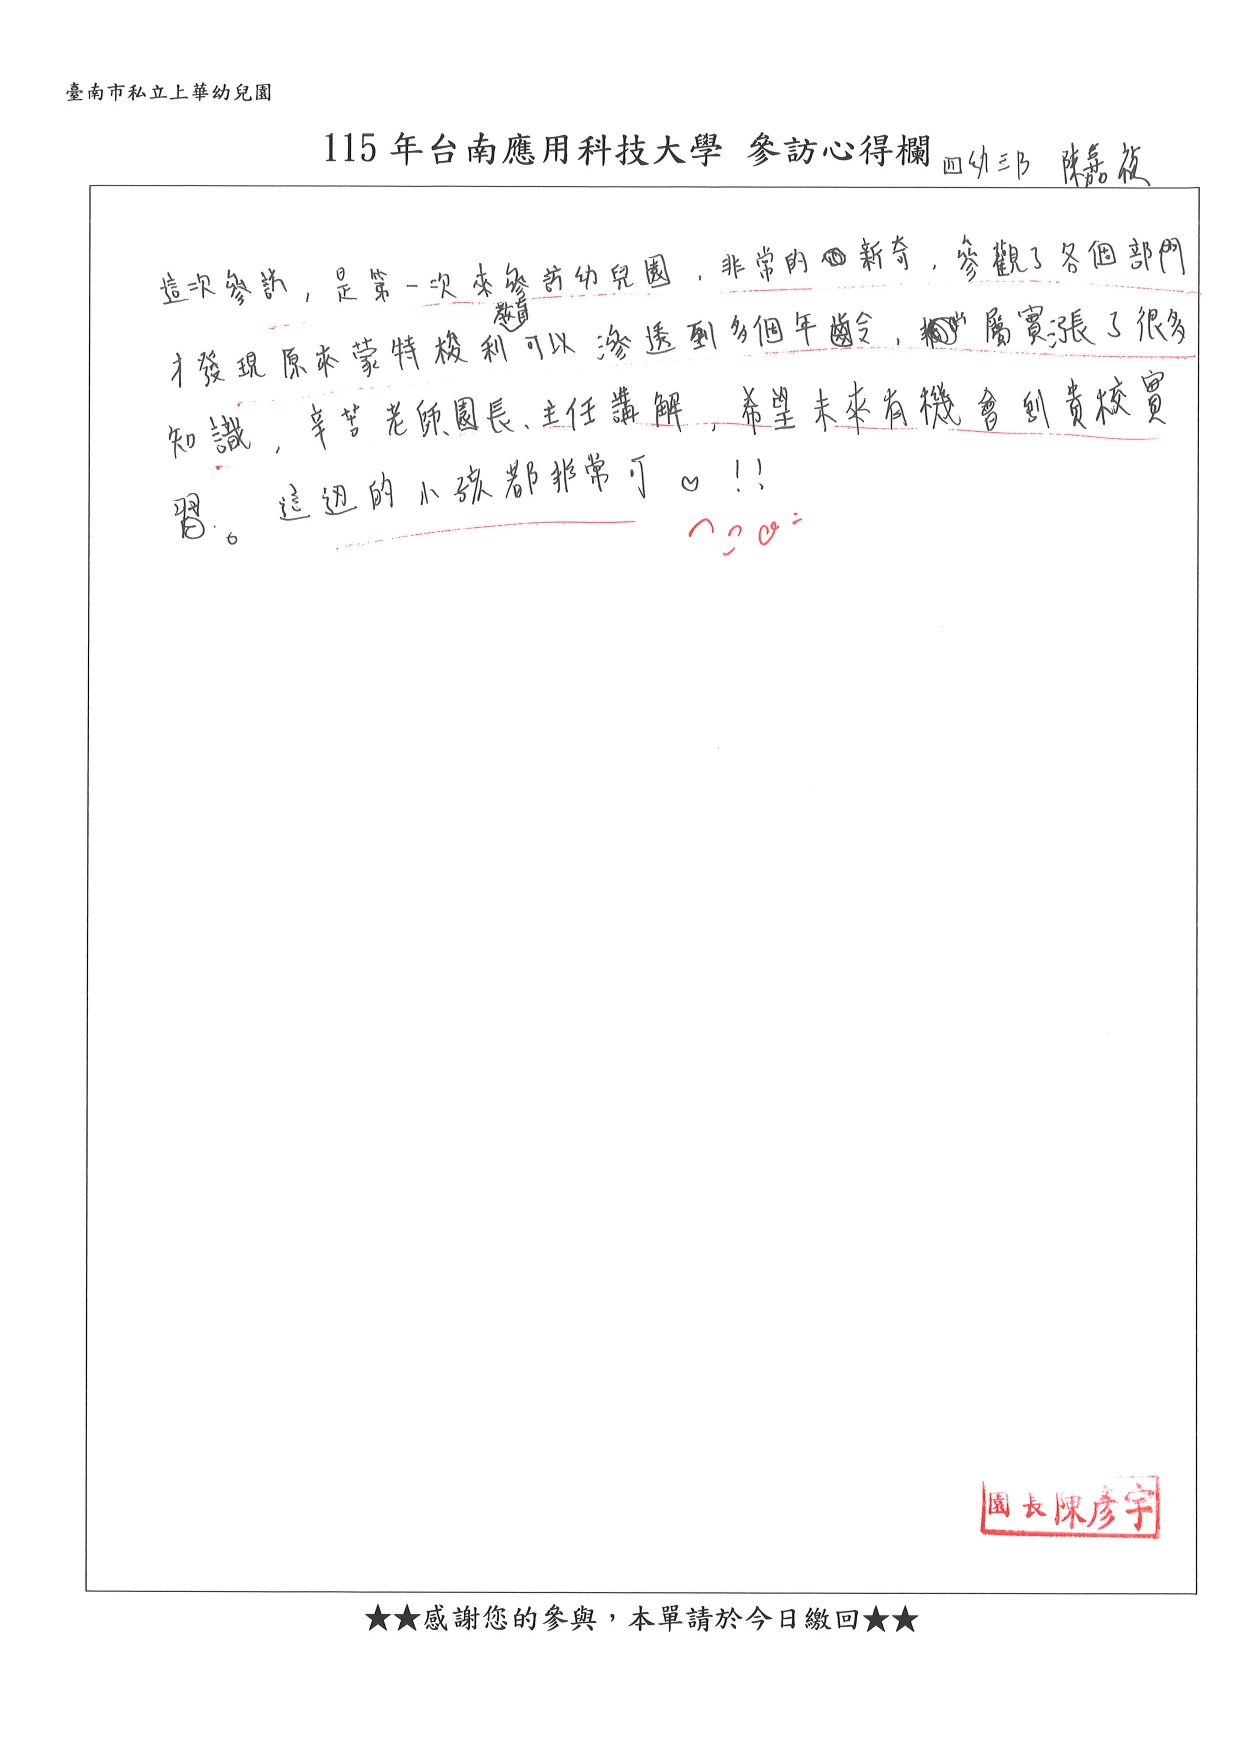 臺南市私立上華幼兒園
115年台南應用科技大學 參訪心得欄 四幼三B 陳嘉
這次參訪,是第一次來參訪幼兒園,非常的新奇,參觀了各個部門
才發現原來蒙特梭利教育可以滲透到多個年齡,屬實漲了很多
知識,辛苦老師園長、主任講解,希望未來有機會到貴校實
習。這边的小孩都非常可♡!!
園長陳彥宇
★★感謝您的參與,本單請於今日繳回★★